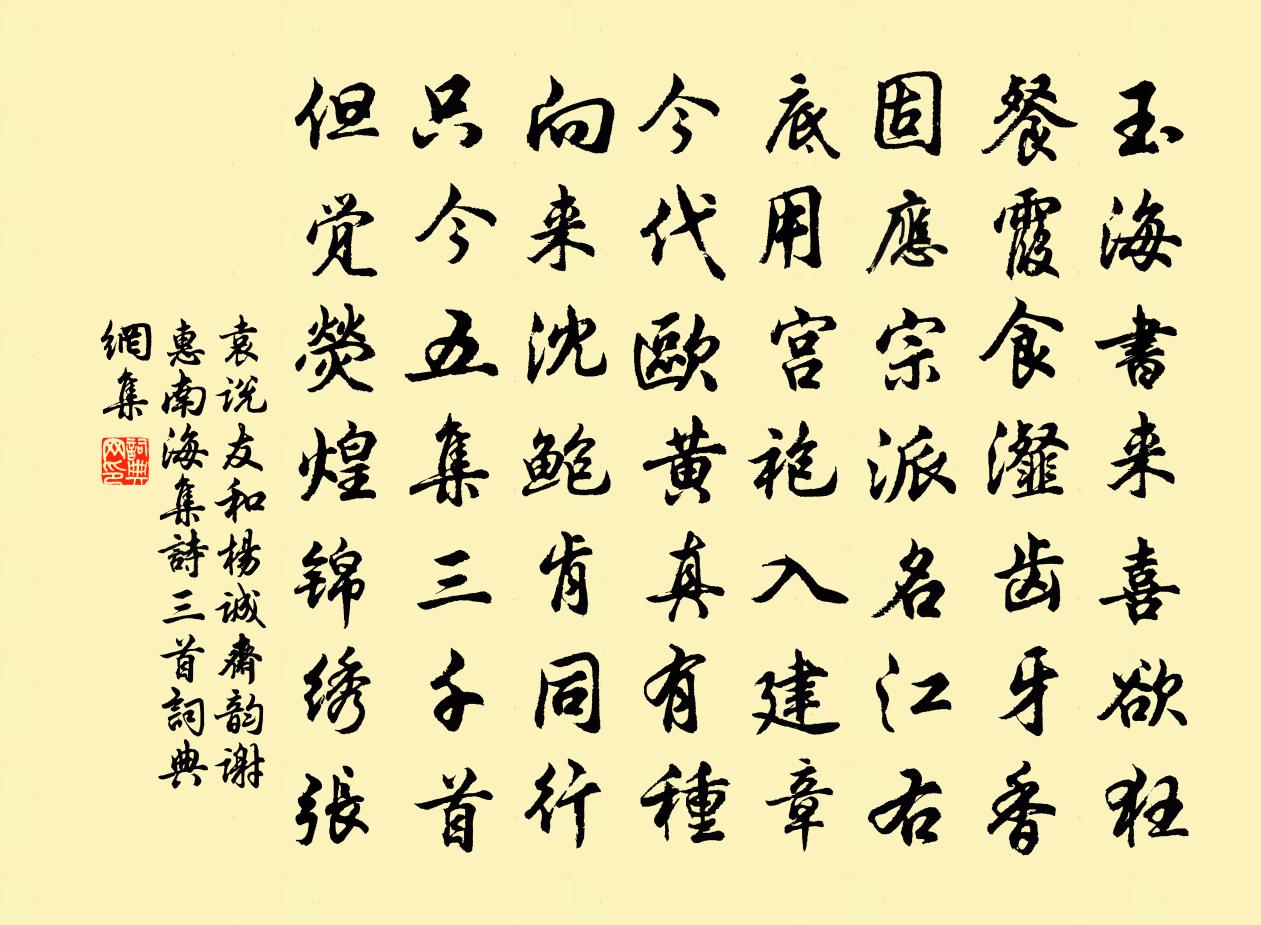 玉海书来喜欲狂
餐霞食瀣齿牙香
固應宗派名江右
底用宫袍入建章
今代歐黄真有種
向来沈鲍肯同行
只今五集三千首
但觉熒煌锦绣張
袁说友和楊诚齋韵谢
惠南海集詩三首詞典
網集
詞典
网印